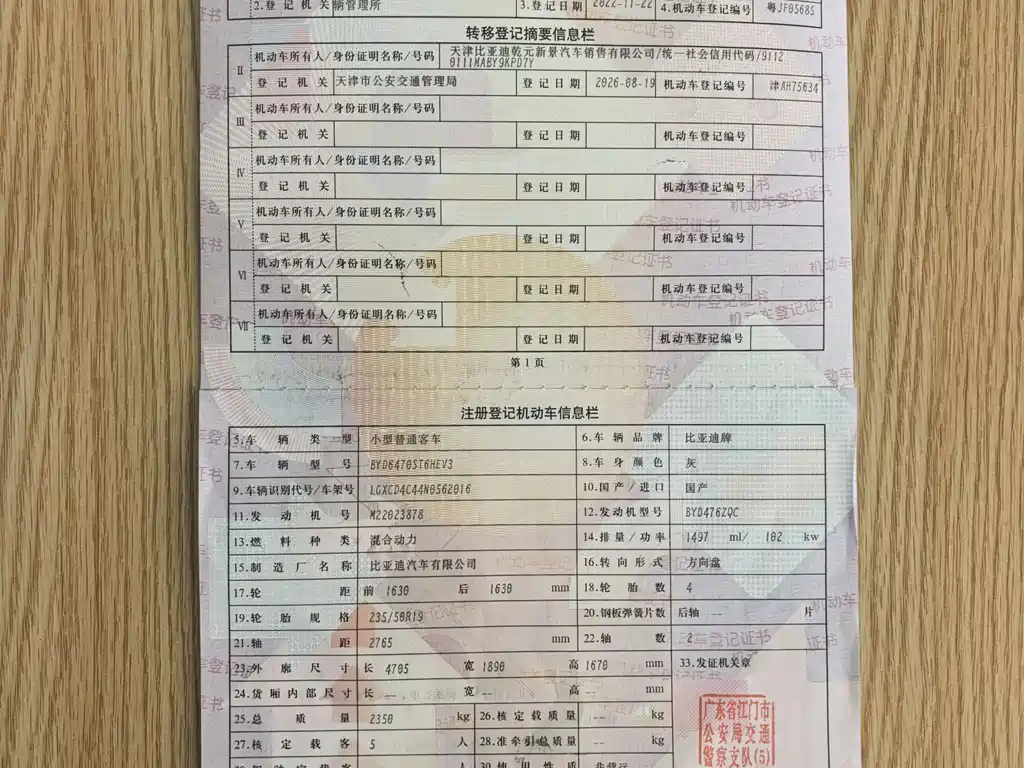 2.登记机关 辆管理所 3.登记日期 2022-11-22 4.机动车登记编号 粤JF05685
转移登记摘要信息栏
Ⅱ 机动车所有人/身份证明名称/号码 天津比亚迪乾元新景汽车销售有限公司/统一社会信用代码/9112
0111MABY9KPD7Y
登记机关 天津市公安交通管理局 登记日期 2026-08-19 机动车登记编号 津AH75634
Ⅲ 机动车所有人/身份证明名称/号码
登记机关 登记日期 机动车登记编号
Ⅳ 机动车所有人/身份证明名称/号码
登记机关 登记日期 机动车登记编号
Ⅴ 机动车所有人/身份证明名称/号码
登记机关 登记日期 机动车登记编号
Ⅵ 机动车所有人/身份证明名称/号码
登记机关 登记日期 机动车登记编号
Ⅶ 机动车所有人/身份证明名称/号码
登记机关 登记日期 机动车登记编号
第1页
注册登记机动车信息栏
5.车辆类型 小型普通客车 6.车辆品牌 比亚迪牌
7.车辆型号 BYD6470ST6HEV3 8.车身颜色 灰
9.车辆识别代号/车架号 LGXCD4C44N0562016 10.国产/进口 国产
11.发动机号 M22023878 12.发动机型号 BYD476ZQC
13.燃料种类 混合动力 14.排量/功率 1497 ml/ 102 kw
15.制造厂名称 比亚迪汽车有限公司 16.转向形式 方向盘
17.轮距 前 1630 后 1630 mm 18.轮胎数 4
19.轮胎规格 235/50R19 20.钢板弹簧片数 后轴 -- 片
21.轴距 2765 mm 22.轴数 2
23.外廓尺寸 长 4705 宽 1890 高 1670 mm 33.发证机关章
24.货厢内部尺寸 长 -- 宽 -- 高 -- mm
25.总质量 2350 kg 26.核定载质量 -- kg
广东省江门市
公安局交通
警察支队(5)
27.核定载客 5 人 28.准牵引总质量 -- kg